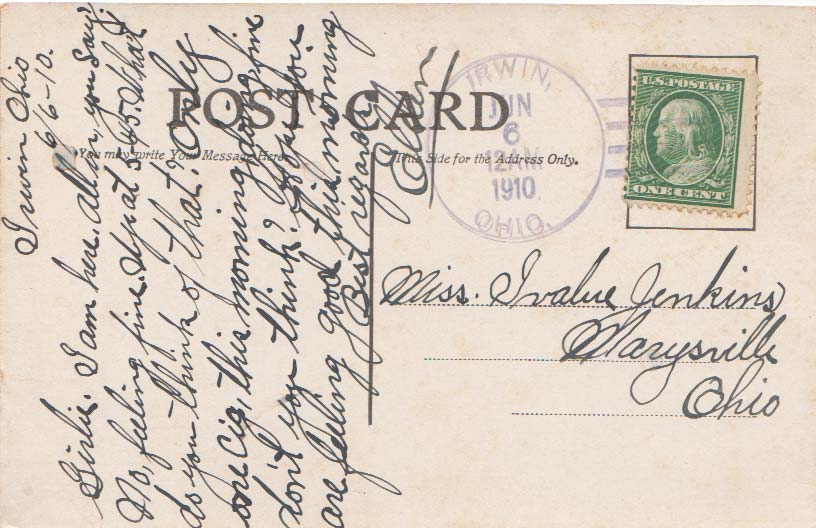 POST CARD
You may write Your Message Here.
This Side for the Address Only.
Irwin Ohio
6/6-10.
Girlie. I am here. all in, you say.
No, feeling fine. Up at 5-45. What
do you think of that? Only
one cig, this morning, doing fine
don't you think? Hope you
are feeling good this morning
Best regards
IRWIN,
JUN
6
12AM
1910
OHIO.
U.S. POSTAGE
ONE CENT
Miss. Ivalue Jenkins
Marysville
Ohio